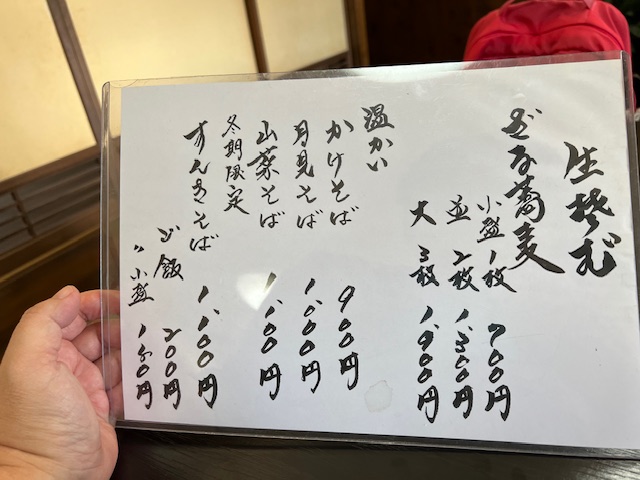 生そば
ざる蕎麦
小盛 1枚 700円
並 2枚 1,300円
大 3枚 1,900円
温かい
かけそば 900円
月見そば 1,000円
山菜そば 1,100円
冬期限定
すんきそば 1,100円
ご飯 200円
〃 小盛 150円